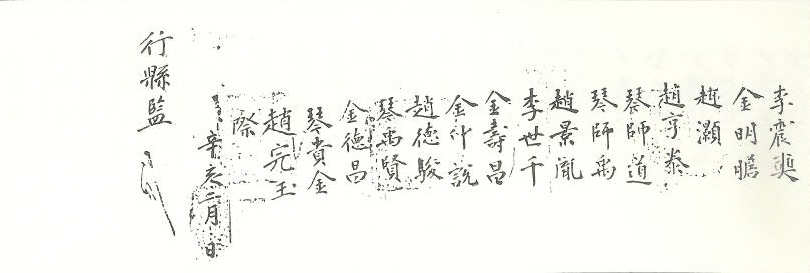 李震奭
金明瞻
趙灝
趙亨泰
琴師道
琴師禹
趙景胤
李世千
金壽昌
金什説
趙德駿
琴禹賢
金德昌
琴貴金
趙完玉
際
辛亥二月 日
行縣監